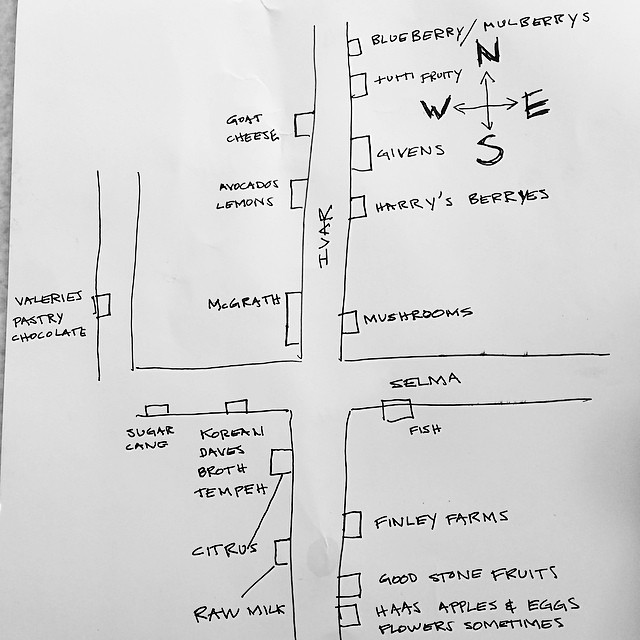 BLUEBERRY/MULBERRYS
N
TUTTI FRUITY
W E
S
GOAT
CHEESE
GIVENS
AVOCADOS
LEMONS
HARRY'S BERRYES
IVAR
VALERIES
PASTRY
CHOCOLATE
McGRATH
MUSHROOMS
SELMA
SUGAR
CANE
KOREAN
DAVES
BROTH
TEMPEH
FISH
CITRUS
FINLEY FARMS
RAW MILK
GOOD STONE FRUITS
HAAS APPLES & EGGS
FLOWERS SOMETIMES